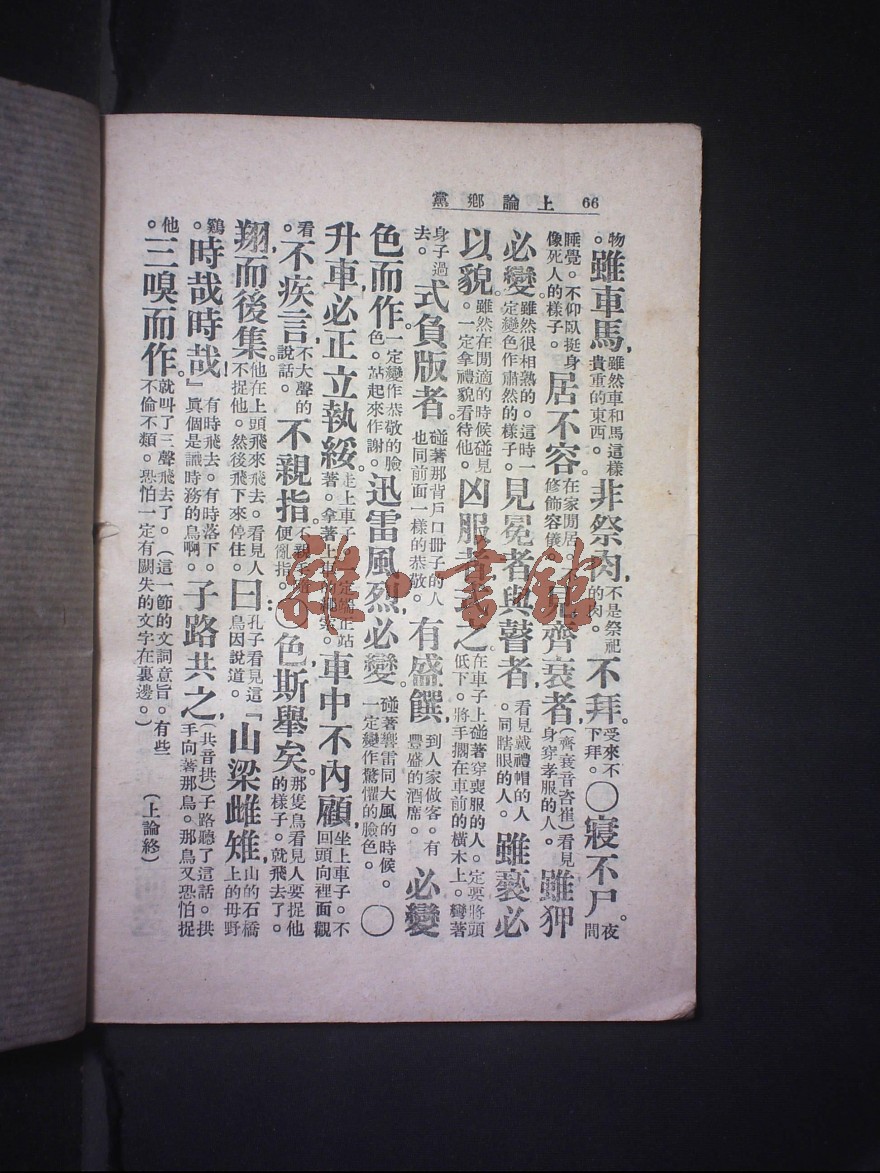 66 上論 鄉黨
物。雖車馬，雖然車和馬這樣貴重的東西。非祭肉，不是祭祀的肉。不拜。受來不下拜。〇寢不尸。夜間
睡覺。不仰臥挺身像死人的樣子。居不容。在家閒居。修飾容儀。見齊衰者，（齊衰音咨崔）看見身穿孝服的人。雖狎
必變。雖然很相熟的。這時一定變色作肅然的樣子。見冕者與瞽者，看見戴禮帽的人。同瞎眼的人。雖褻必
以貌。雖然在閒適的時候碰見。一定拿禮貌看待他。凶服者式之。在車子上碰著穿喪服的人。定要將頭低下。將手擱在車前的橫木上。彎著
身子過去。式負版者。碰著那背戶口冊子的人也同前面一樣的恭敬。有盛饌，到人家做客。有豐盛的酒席。必變
色而作。一定變作恭敬的臉色。站起來作謝。迅雷風烈必變。碰著響雷同大風的時候。一定變作驚懼的臉色。〇
升車必正立執綏。走上車子。定端正站著。拿著上車的。車中不內顧，坐上車子。不回頭向裡面觀
看。不疾言，不大聲的說話。不親指。不親便亂指。〇色斯舉矣。那隻鳥看見人要捉他的樣子。就飛去了。
翔而後集。他在上頭飛來飛去。看見人不捉他。然後飛下來停住。曰：孔子看見這鳥因說道。「山梁雌雉，山的石橋上的母野
鷄。時哉時哉！」有時飛去。有時落下。眞個是識時務的鳥啊。子路共之，（共音拱）子路聽了這話。拱手向著那鳥。那鳥又恐怕捉
他。三嗅而作。就叫了三聲飛去了。（這一節的文詞意旨。有些不倫不類。恐怕一定有闕失的文字在裏邊。）（上論終）
雜·書館